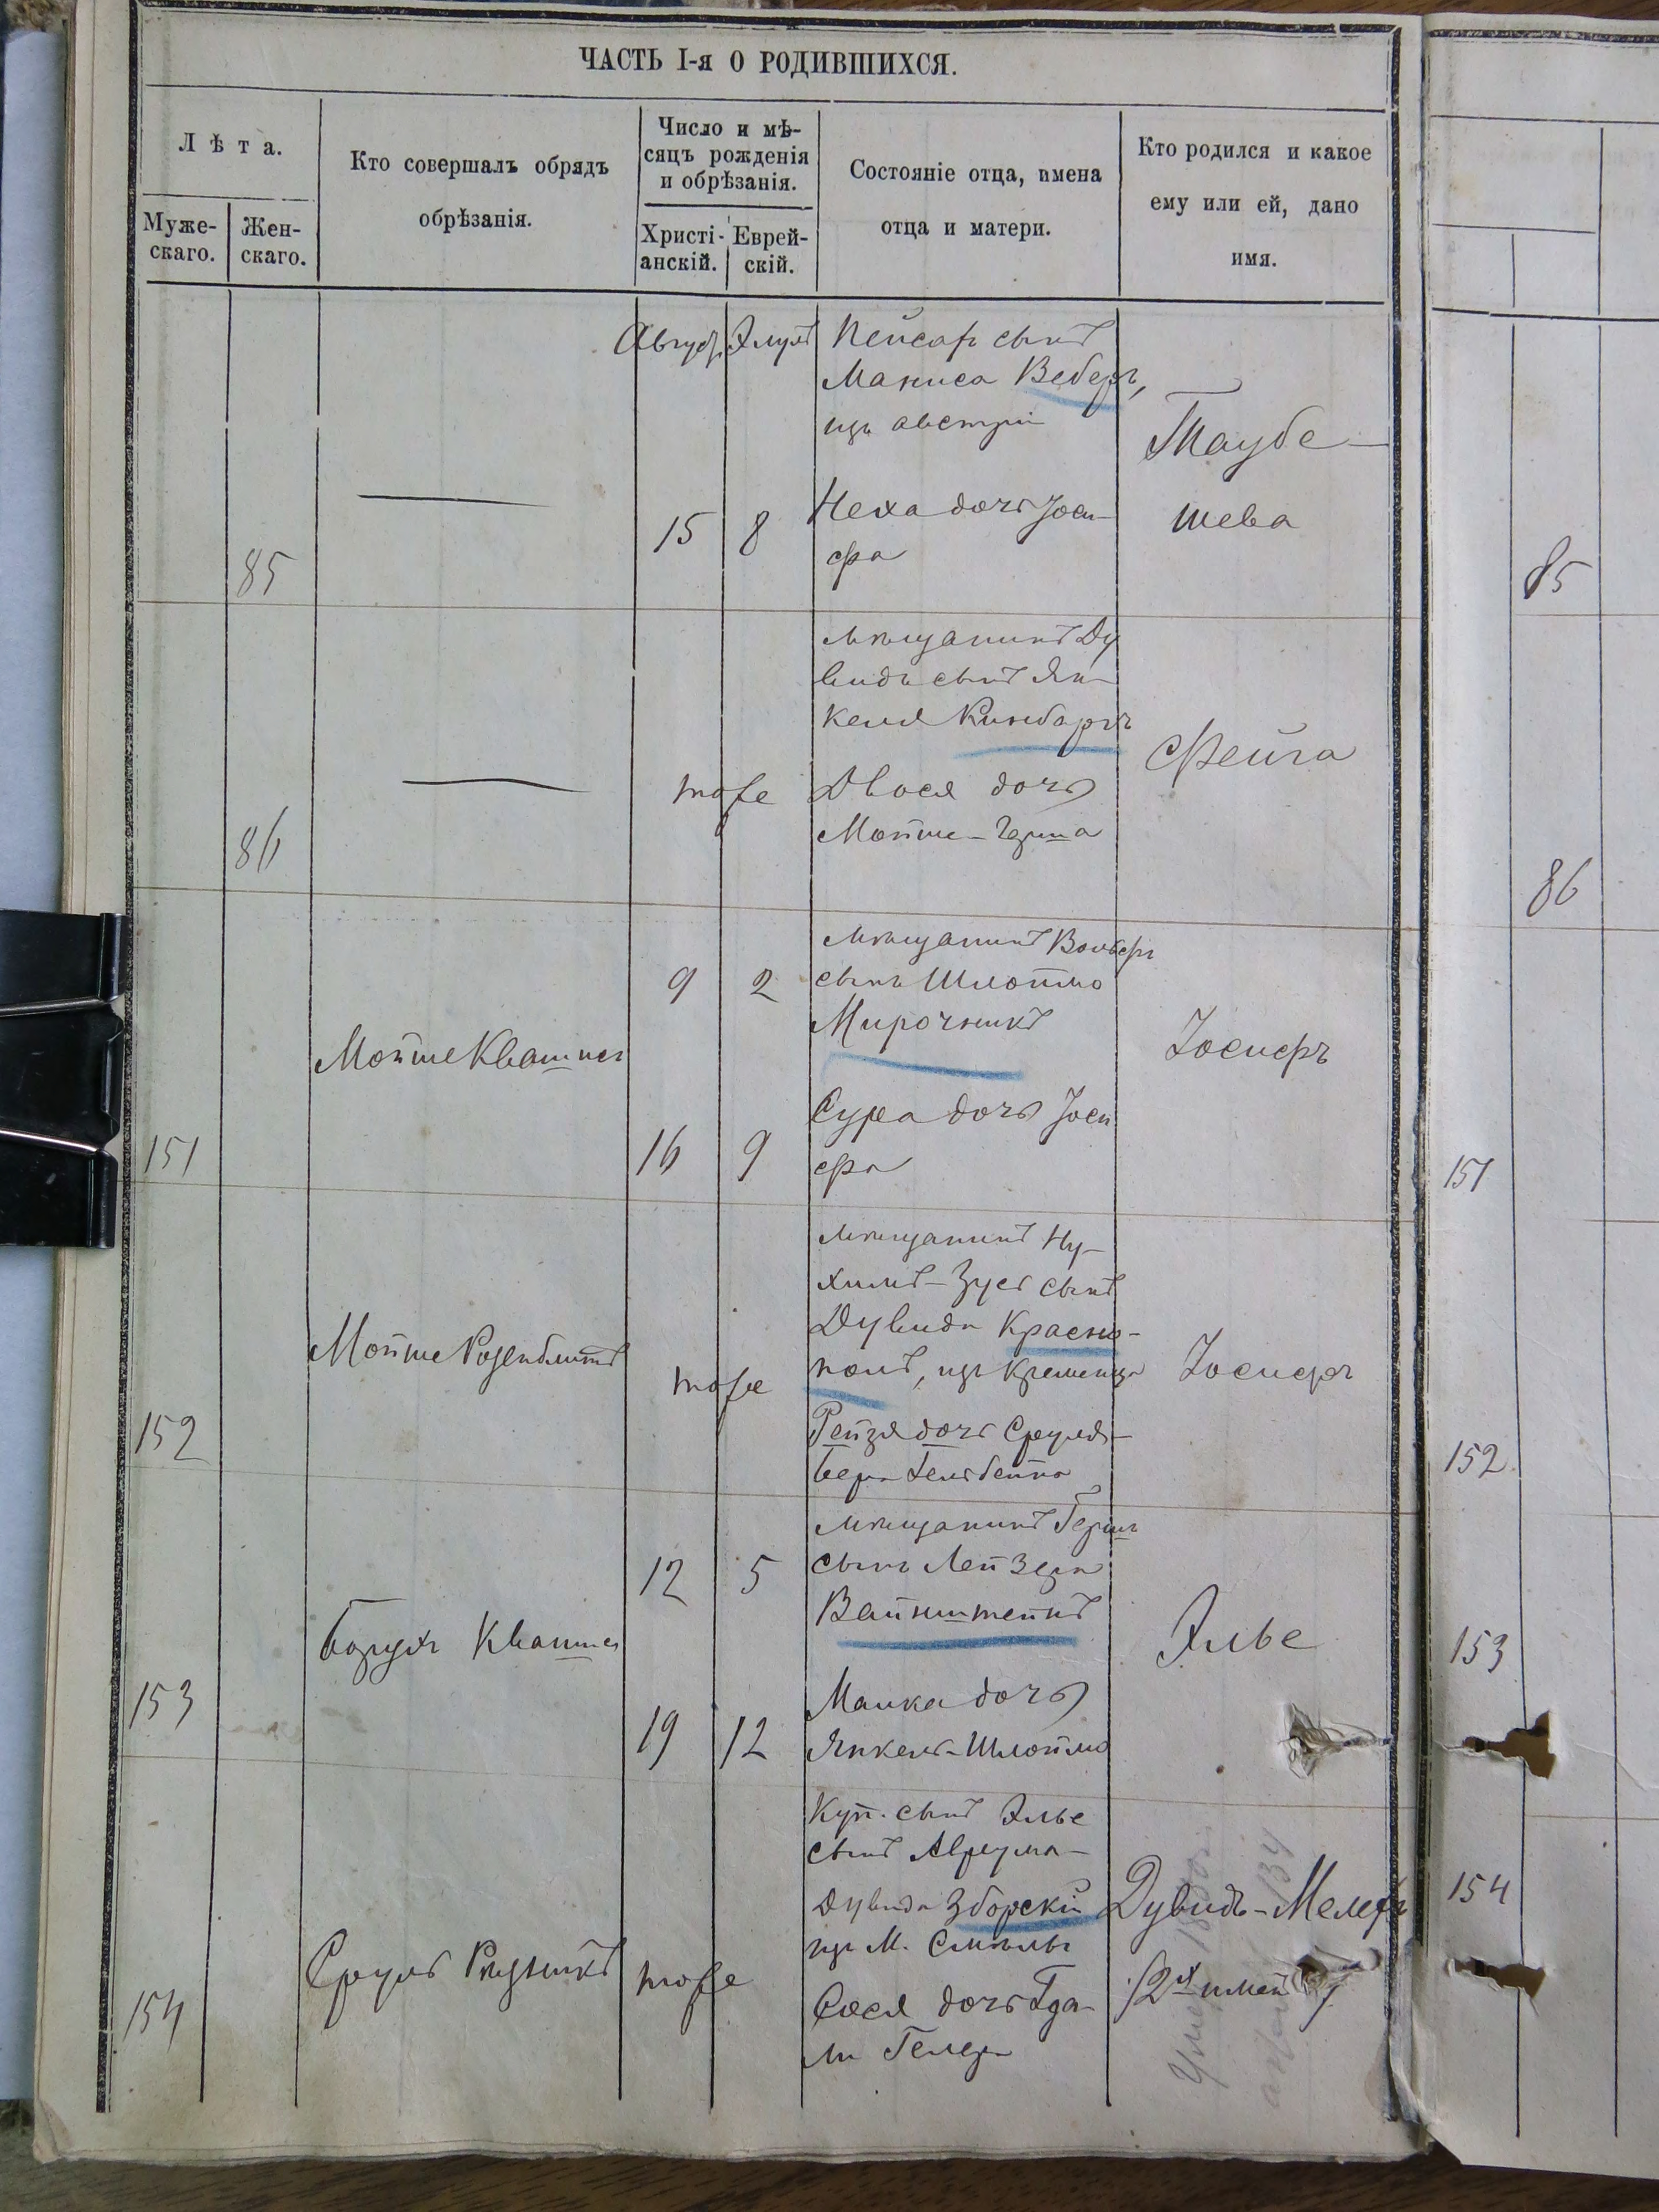 ЧАСТЬ I-я О РОДИВШИХСЯ.
Лѣта.
Муже-
скаго.
Жен-
скаго.
Кто совершалъ обрядъ
обрѣзанія.
Число и мѣ-
сяцъ рожденія
и обрѣзанія.
Христі-
анскій.
Еврей-
скій.
Состояніе отца, имена
отца и матери.
Кто родился и какое
ему или ей, дано
имя.
Август. Элулъ
85
15 8
Пейсахъ сынъ
Маниса Веберъ,
изъ австріи
Неха дочь Іоси-
фа
Таубе-
шева
85
86
тоже
мѣщанинъ Ду
видъ сынъ Ян-
келя Кинбаръ
Двося дочь
Мойше-Герша
Фейга
86
151
Мойше Квашис
9 2
16 9
мѣщанинъ Вольфъ
сынъ Шлоймо
Мирочникъ
Сура дочь Іоси
фа
Іосифъ
151
152
Мойше Розенблитъ
тоже
мѣщанинъ Ну-
химъ-Зусь сынъ
Дувида Красно-
полъ, изъ Кременца
Рейзя дочь Сруля-
Бера
Іосифъ
152
153
Борухъ Квашис
12 5
19 12
мѣщанинъ Гершъ
сынъ Лейзера
Вайнштейнъ
Малка дочь
Янкель-Шлоймо
Элье
153
154
Сруль Ридникъ
тоже
Куп. сынъ Элье
сынъ Аврума-
Дувида Зборскій
изъ М. Смѣлы
Сося дочь Гда-
ли Гелера
Дувидъ-Мелехъ
/2х имен/
154